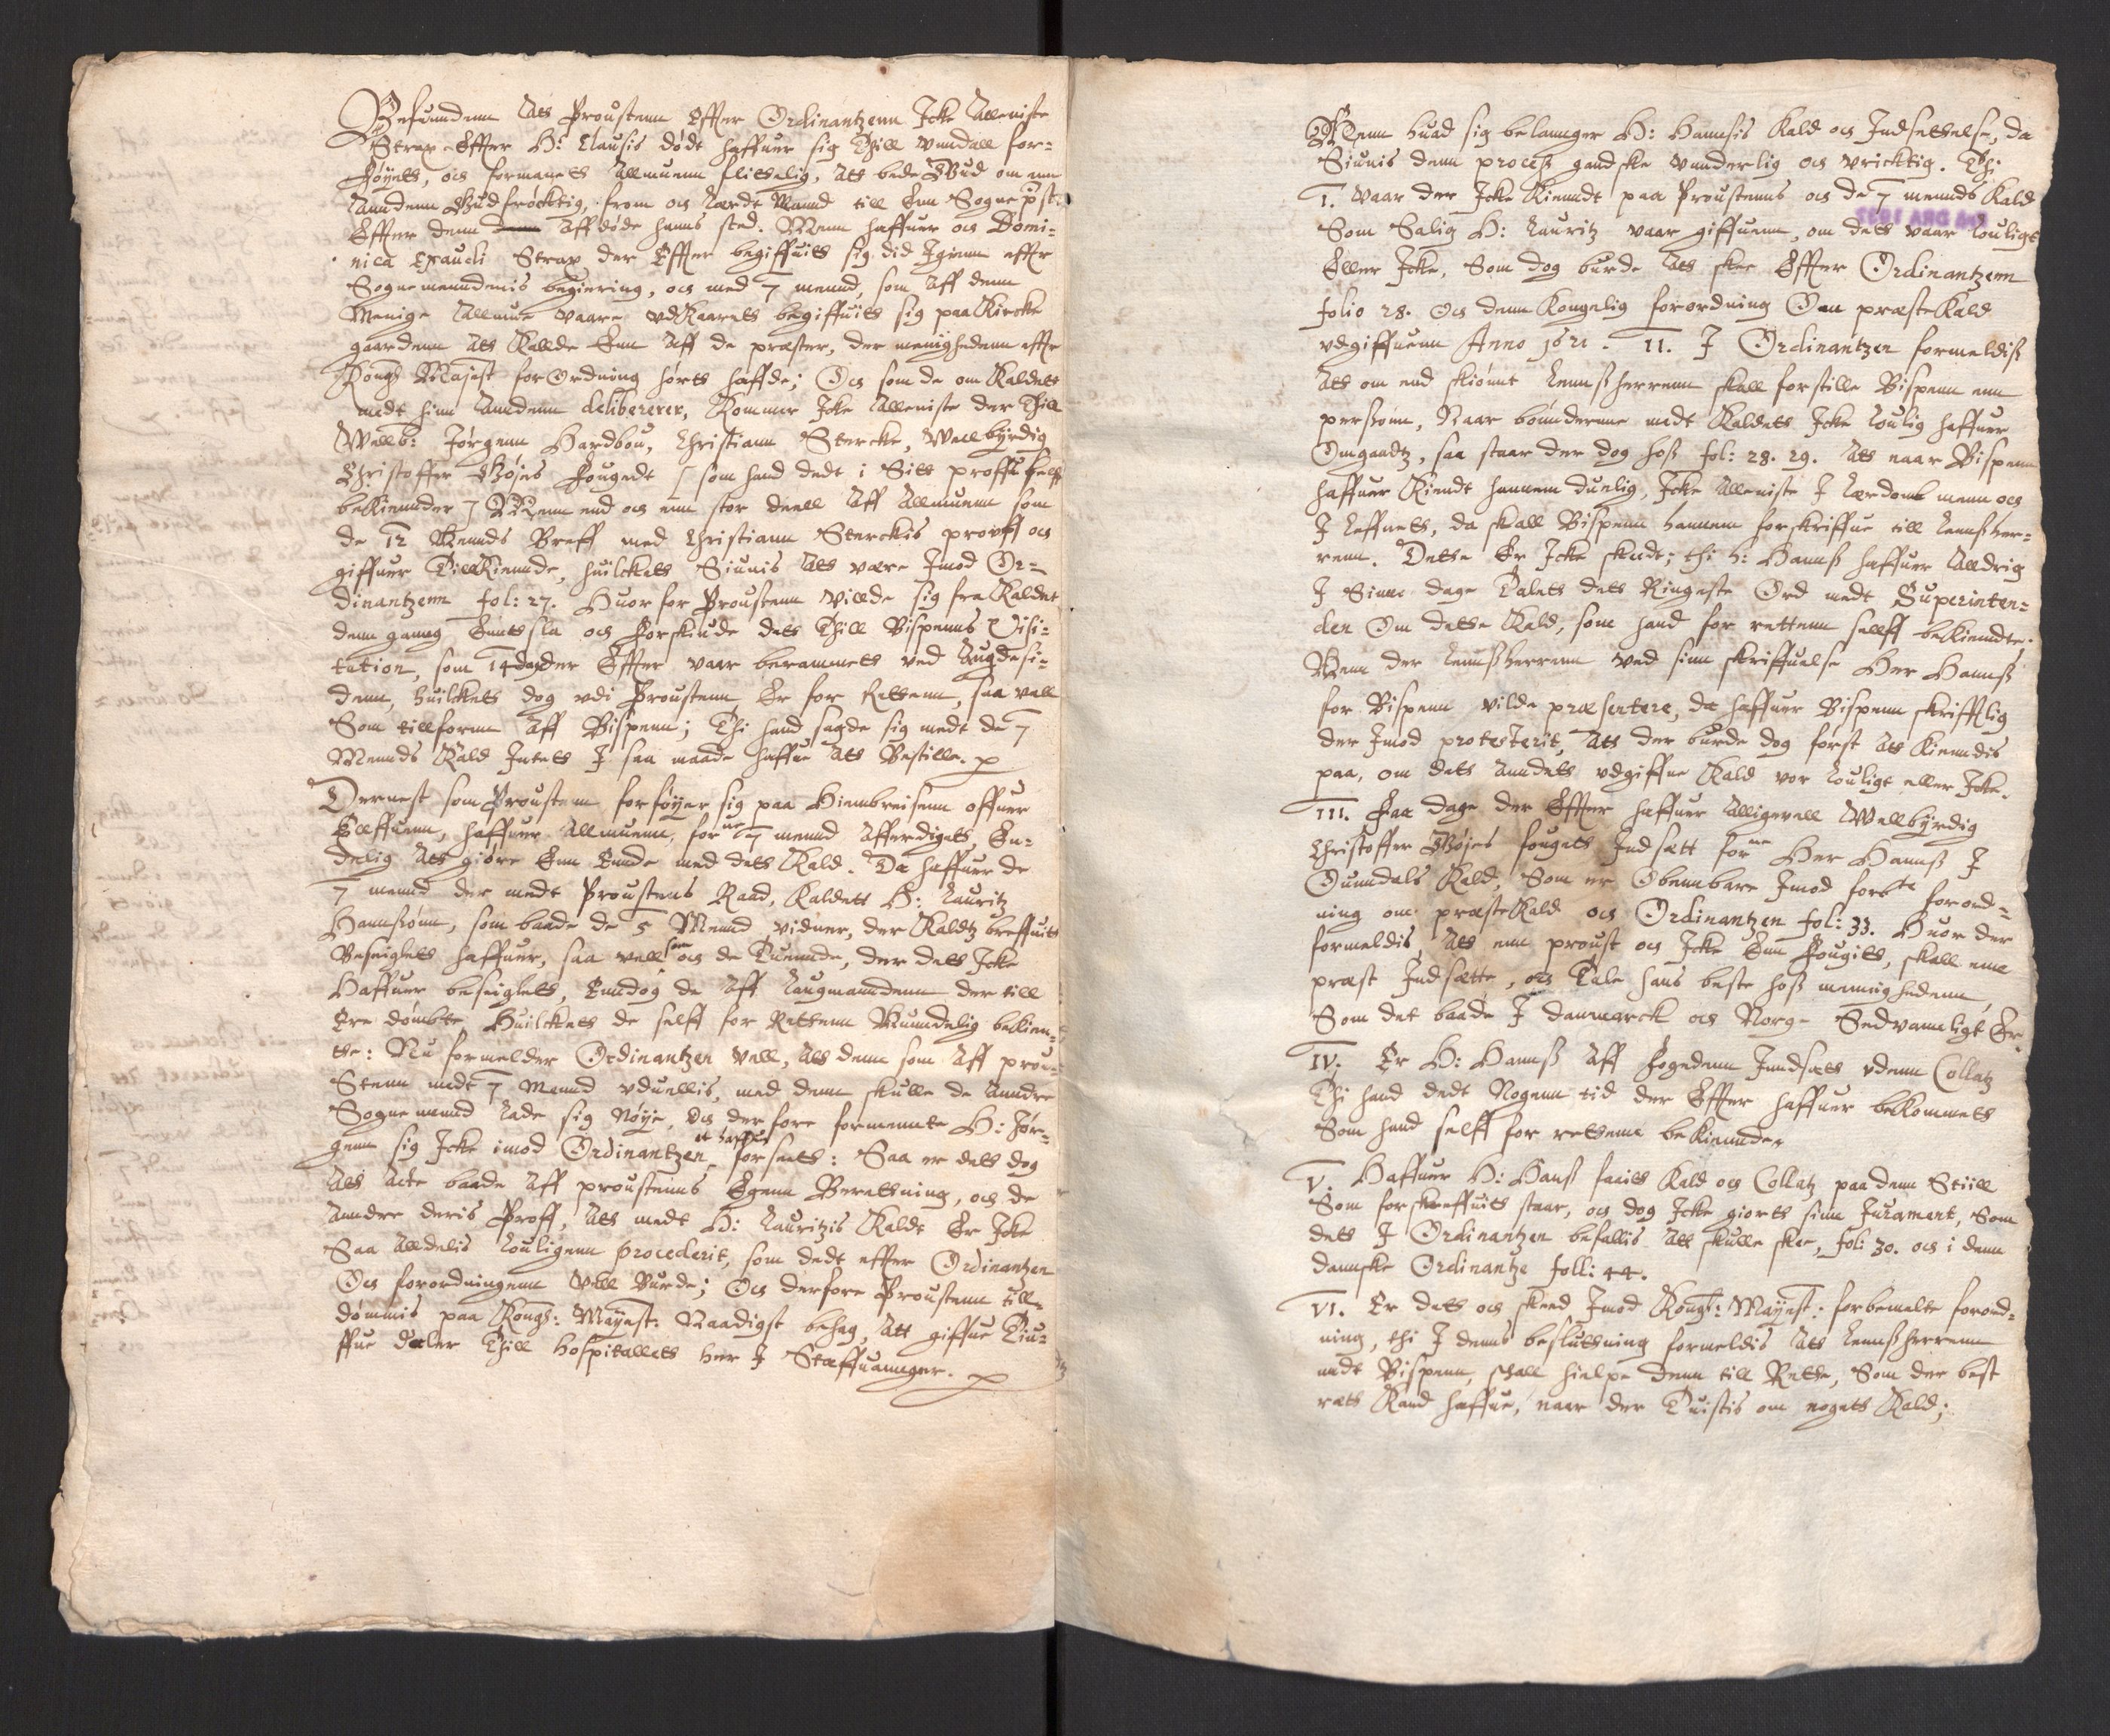 Befundenn Att Proustenn Effter Ordinantzenn Icke Alleniste
Strax Effter H: Clausis dødt haffuer sig Thill Vundall for=
føyett, och formanett Allmuenn flittelig, Att bede Gud om enn
Anndenn Gudfrøcktig, from och Lærdt Mand till Enn Sogne pst:
Effter denn Affdøde hanns sted. Menn haffuer och Domi=
nica Exaudi Strax der Effter begiffuitt sig did Igienn effter
Sognemenndenis begiering, och med 7 mennd, som Aff denn
Menige Allmue vaare vdkaarett begiffuitt sig paa Kircke
gaardenn Att Kallde Enn Aff de præster, der menighedenn effter
Kong: Mayest forOrdning hørtt haffde; Och som de om Kaldett
medt hinn Anndenn delibererer, Kommer Icke Alleniste der Thill
Wellb: Jørgenn Hardbou, Christiann Stercke, Wellbyrdig
Christoffer Gøjes fougedt [som hand dedt i Sitt proff self
bekiennder] Menn end och enn stor deell Aff Allmuenn som
de 12 Mennds Breff med Christiann Sterckis prouff och
giffuer Tillkiennde, huilckett Siunis Att være Imod Or=
dinantzenn fol: 27. Huor for Proustenn Villde sig fra Kaldet
denn ganng Enntsla och forskiude dett Thill Bispenns Visi=
tation, som 14 dag der Effter vaar berammett ved Augdesi=
denn, huilckett dog vdi Proustenn Er for Rettenn, saa vell
Som tillforne Aff Bispenn; Thi hand sagde sig medt de 7
Mennds Kald Intett I saa maade haffue Att Bestille.
Dernest som Proustenn forføyer sig paa Hiembreisenn offuer
Elffuenn, haffuer Allmuenn, forne 7 mennd Afferdigett, En=
delig Att giøre Enn Ennde med dett Kald. Da haffuer de
7 mennd der medt Proustens Raad, Kaldett H: Lauritz
Hannsønn, som baade de 5 Mennd vidner, der Kaldtz breffuitt
Beseiglett haffuer, saa vell som och de Tuennde, der dett Icke
Haffuer beseiglett, Enndog de Aff Laugmanndenn der till
Ere dømbte, Huilckett de selff for Rettenn Munndelig bekien=
te: Nu formelder Ordinantzen Vell, Att denn som Aff prou=
Stenn medt 7 Mennd vduellis, med denn skulle de Anndre
Sognemennd Lade sig Nøye, Och derfore formennte H: Jør=
genn sig Icke imod Ordinantzen at haffue forseet: Saa er dett dog
Att Acte baade Aff prousteins Egenn Berettning, och de
Anndre deris Proff, Att medt H: Lauritzis Kaldt Er Icke
Saa Alldelis Louligenn procederit, som dedt effter Ordinantzen
Och forordningenn Vell burde; Och derfore Proustenn till=
dømmis paa Kongl: Mayest: Naadigst behag, Att giffue Tiu=
ffue daler Thill Hospitallett her I Staffuannger.
Menn huad sig belannger H: Hannsis Kald och Indsettelse, da
Siunis denn process gandske vunderlig och vricktig. Thi
I. Vaar der Icke Kienndt paa Proustenns och de 7 mennds Kald
Som Salig H: Lauritz vaar giffuenn, om dett vaar Louligt
Eller Icke, Som dog burde Att skee Effter Ordinantzenn
folio 28. Och denn Kongelig forordning Om præsteKald
vdgiffuenn Anno 1621. II. I Ordinantzen formeldiss
Att om end skiønt Lennssherrenn skall forstille Bispenn enn
persoon, Naar bønnderenne medt Kaldett Icke Loulig haffuer
Omgaadtz, saa staar der dog hoss fol: 28. 29. Att naar Bispenn
haffuer Kiendt hannem duelig, Icke Alleniste I Lærdom menn och
I Leffnett, da skall Bispenn hannem forskriffue till Lennssher=
renn. Dette Er Icke skeedt; thi H: Hannss haffuer Alldrig
I Sinne dage Talett dett Ringeste Ord medt Superinten=
den Om dette Kald, som hand for rettenn sellff bekiendte.
Menn der Lennssherrenn ved sinn skriffuelse Her Hannss
for Bispenn vilde præsentere, da haffuer Bispenn skrifftlig
der Imod protesterit, Att der burde dog først Att kienndis
paa, om dett Anndett vdgiffne Kald vor Louligt eller Icke.
III. Faa dage der Effter haffuer Alligevell Wellbyrdig
Christoffer Gøjes fougett Indsatt forne Her Hannss I
Ounndals Kald, Som er Obennbare Imod forbte forord=
ning om præsteKald och Ordinantzen fol: 33. Huor der
formeldis, Att enn proust och Icke Enn fougitt, skall enn
præst Indsætte, och Tale hans beste hoss mennighedenn,
Som det baade I danmarck och Norge Sedvannligt Er.
IV. Er H: Hannss Aff fogedenn Inndsatt vdenn Collatz
Thi hand dedt Nogenn tid der Effter haffuer bekommett
Som hand selff for rettenn bekiennder
V. Haffuer H: Hanss faaitt Kald och Collatz paa denn Stiill
Som forskreffuitt staar, och dog Icke giortt sinn Jurament, Som
dett I Ordinantzen befallis Att skulle skee, fol: 30. och i denn
dannske Ordinantze foll: 44.
VI. Er dett och skeed Imod Kongl: Mayest: forbemelte forord=
ning, thi I denns besluttning formeldis Att Lennssherrenn
medt Bispenn, schall hielpe denn till Rette, Som der best
rett Kand haffue, naar der Tuistis om nogett Kald;